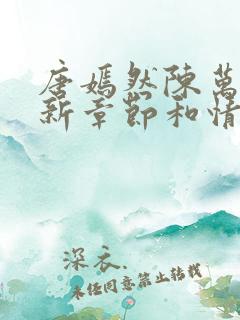 唐嫣然陳萬
新章節和情
深衣.
未经同意禁止转载